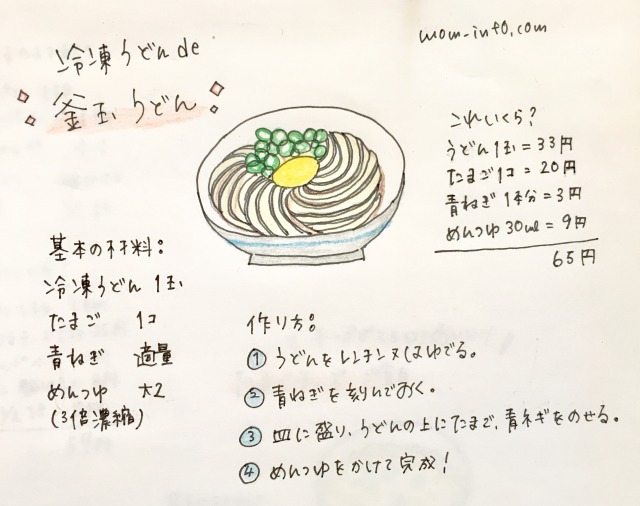 冷凍うどんde
釜玉うどん
mom-info.com
これいくら?
うどん1玉=33円
たまご1コ=20円
青ねぎ1本分=3円
めんつゆ30ml=9円
65円
基本の材料:
冷凍うどん 1玉
たまご 1コ
青ねぎ 適量
めんつゆ 大2
(3倍濃縮)
作り方:
① うどんをレンチン又はゆでる。
② 青ねぎを刻んでおく。
③ 皿に盛り、うどんの上にたまご、青ネギをのせる。
④ めんつゆをかけて完成!